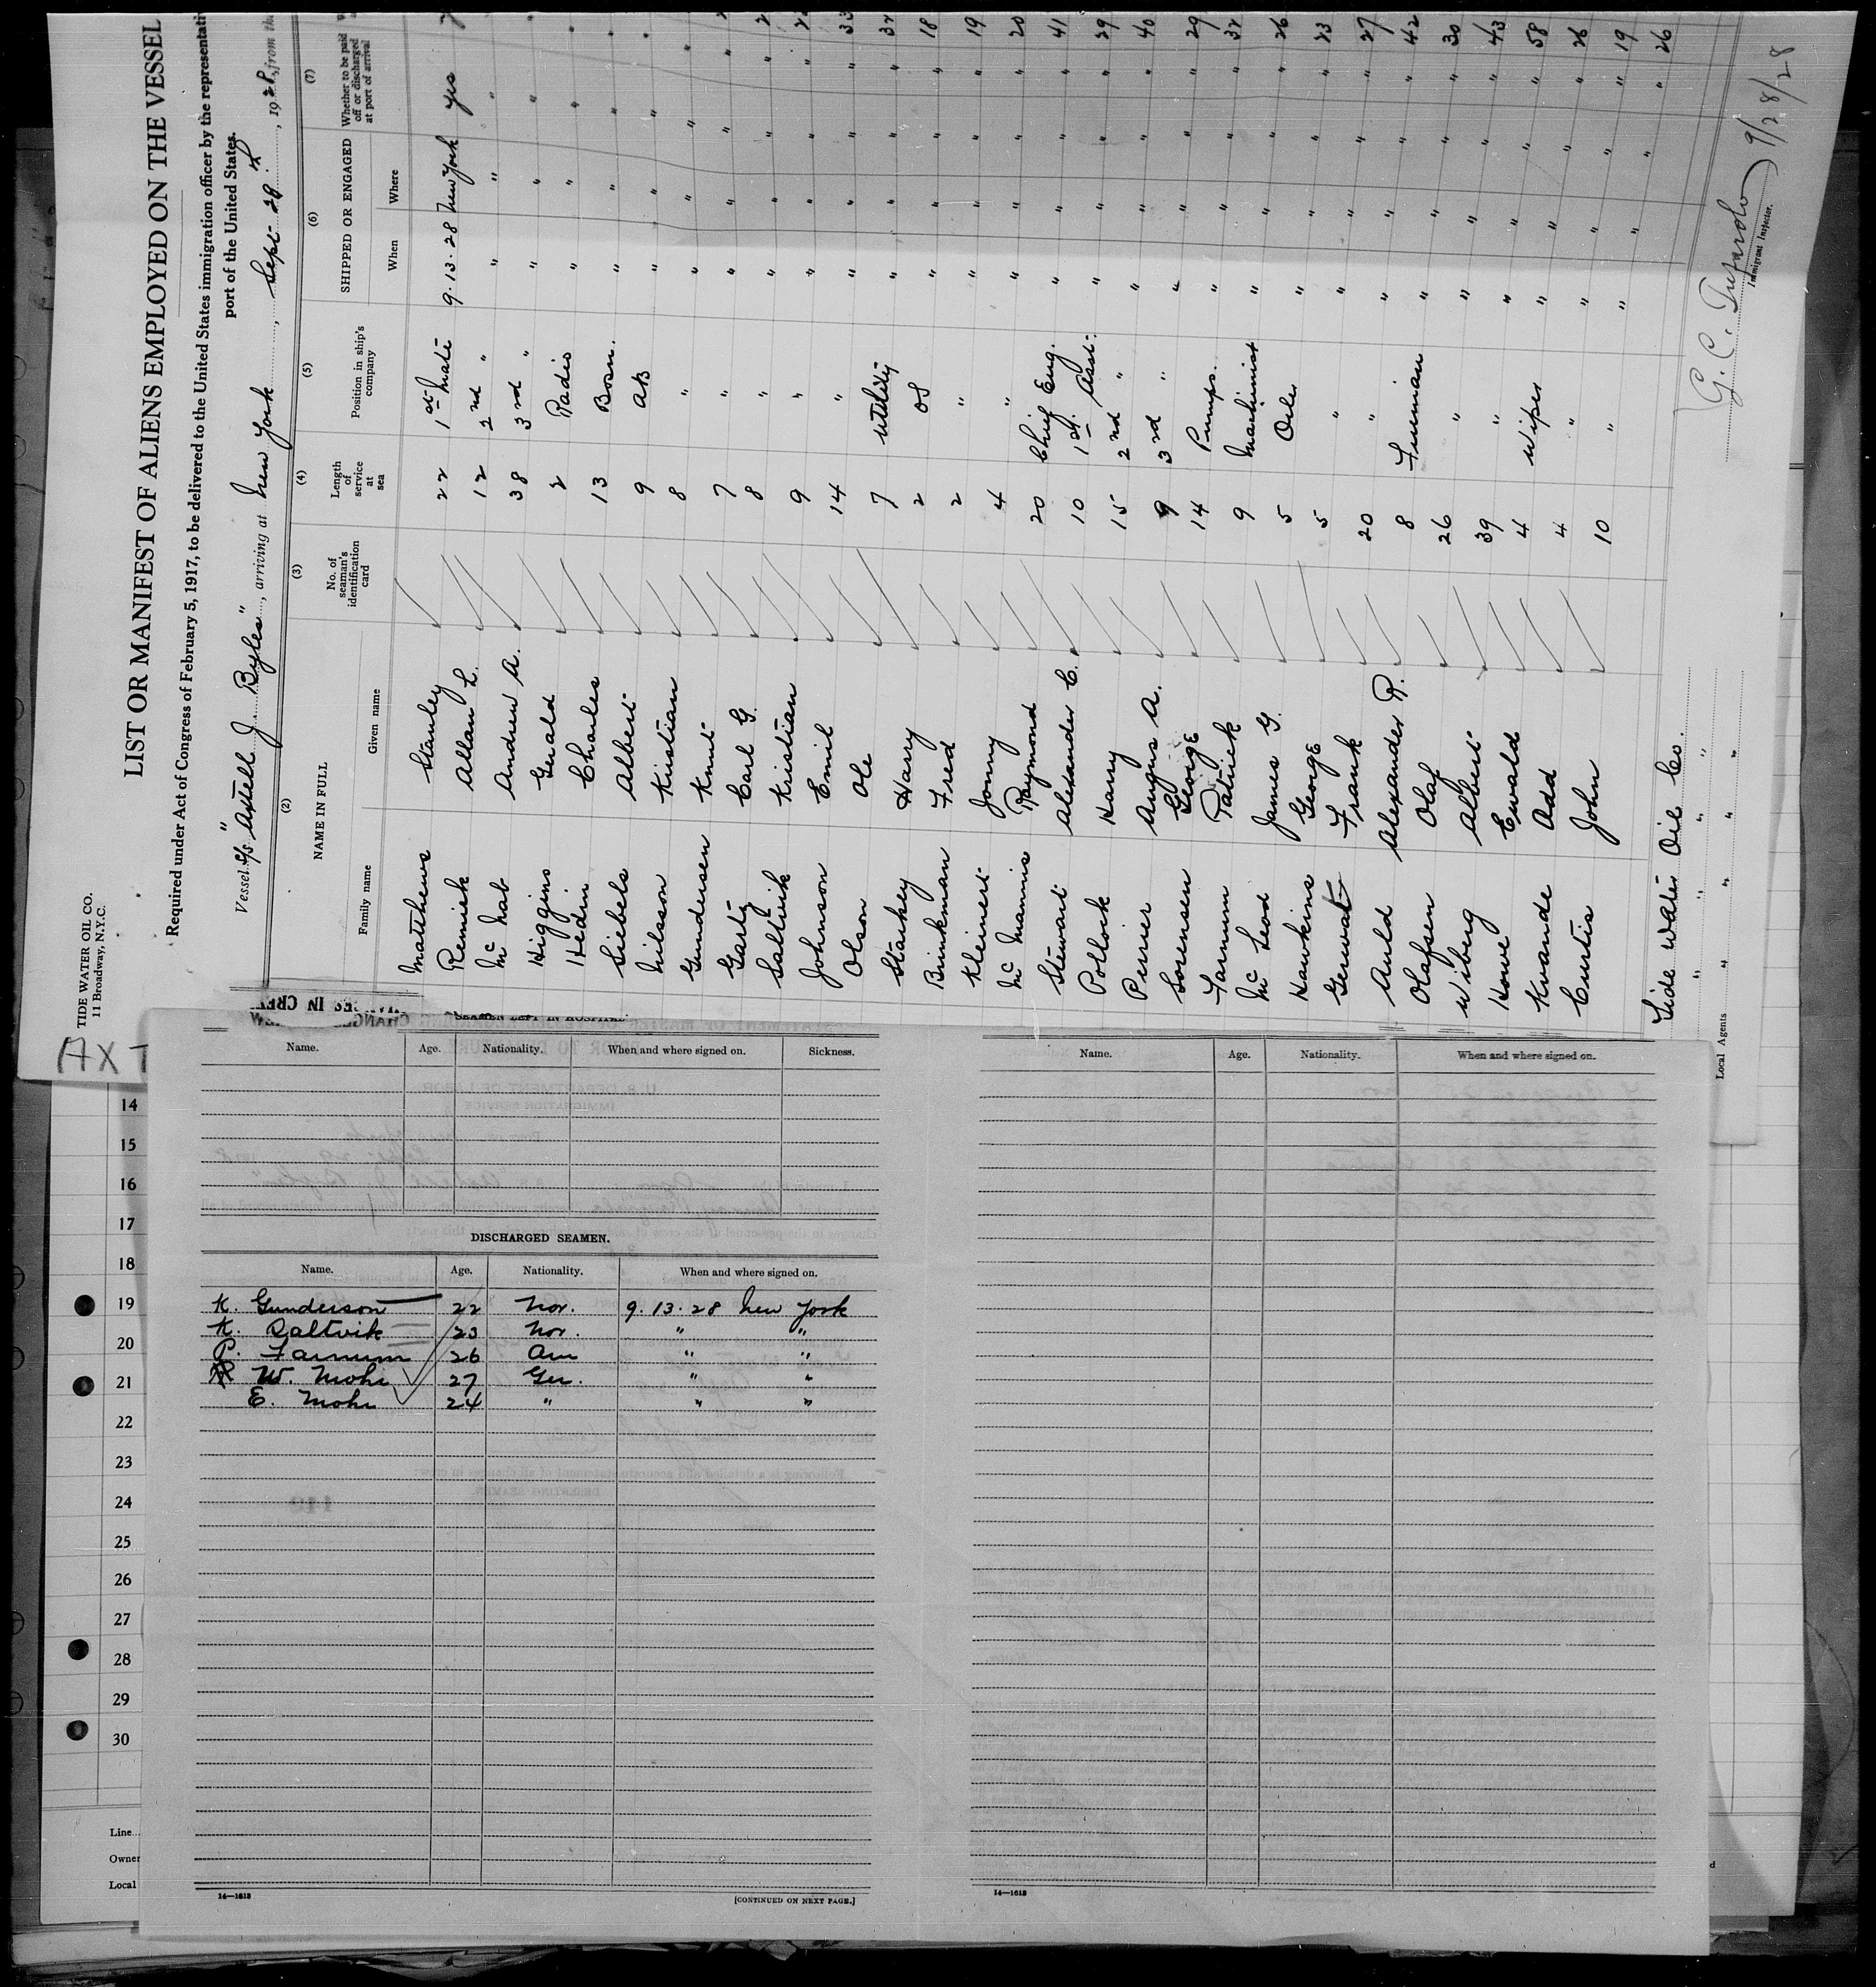 TIDE WATER OIL CO.
11 Broadway, N.Y.C.
LIST OR MANIFEST OF ALIENS EMPLOYED ON THE VESSEL
Required under Act of Congress of February 5, 1917, to be delivered to the United States immigration officer by the representativ
port of the United States.
Vessel S/S "Axtell J. Byles", arriving at New York, Sept. 28th, 1928, from the
(2) (3) (4) (5) (6) (7)
NAME IN FULL
Family name Given name
No. of seaman's identification card
Length of service at sea
Position in ship's company
SHIPPED OR ENGAGED
When Where
Whether to be paid off or discharged at port of arrival
Matthews Stanley 22 1st Mate 9.13.28 New York yes
Remick Allan L. 12 2nd " " "
McNab Andrew A. 38 3rd " " "
Higgins Gerald 2 Radio " "
Hedin Charles 13 Bosn. " "
Siebels Albert 9 AB " "
Nilsson Kristian 8 " " "
Gundersen Knut 7 " " "
Garti Carl G. 8 " " "
Saltvik Kristian 9 " " "
Johnson Emil 14 " " "
Olson Ole 7 Utility " "
Starkey Harry 2 OS " "
Brinkman Fred 2 " " "
Kleinert Jonny 4 " " "
McMannis Raymond 20 Chief Eng. " "
Stewart Alexander C. 10 1st. Asst. " "
Pollock Harry 15 2nd " " "
Perrier Angus A. 9 3rd " " "
Sorensen George 14 Pumps. " "
Farnum Patrick 9 Machinist " "
McLeod James G. 5 Oiler " "
Hawkins George 5 " " "
Gerwat Frank 20 " " "
Auld Alexander R. 8 Fireman " "
Olafsen Olaf 26 " " "
Wiberg Albert 39 " " "
Howe Ewald 4 Wiper " "
Kvande Odd 4 " " "
Curtis John 10 " " "
Tide Water Oil Co.
Local Agents
G. C.
Immigrant Inspector.
9/28/28
AXT
Name. Age. Nationality. When and where signed on. Sickness.
DISCHARGED SEAMEN.
Name. Age. Nationality. When and where signed on.
K. Gunderson 22 Nor. 9.13.28 New York
K. Saltvik 23 Nor. " "
P. Farnum 26 Am " "
W. Mohr 27 Ger. " "
E. Mohr 24 " " "
14—1613
[CONTINUED ON NEXT PAGE.]
Name. Age. Nationality. When and where signed on.
14—1613
14
15
16
17
18
19
20
21
22
23
24
25
26
27
28
29
30
Line
Owner
Local